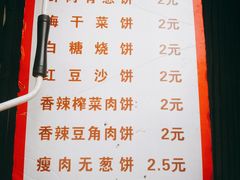 梅干菜饼 2元
白糖烧饼 2元
红豆沙饼 2元
香辣榨菜肉饼 2元
香辣豆角肉饼 2元
瘦肉无葱饼 2.5元